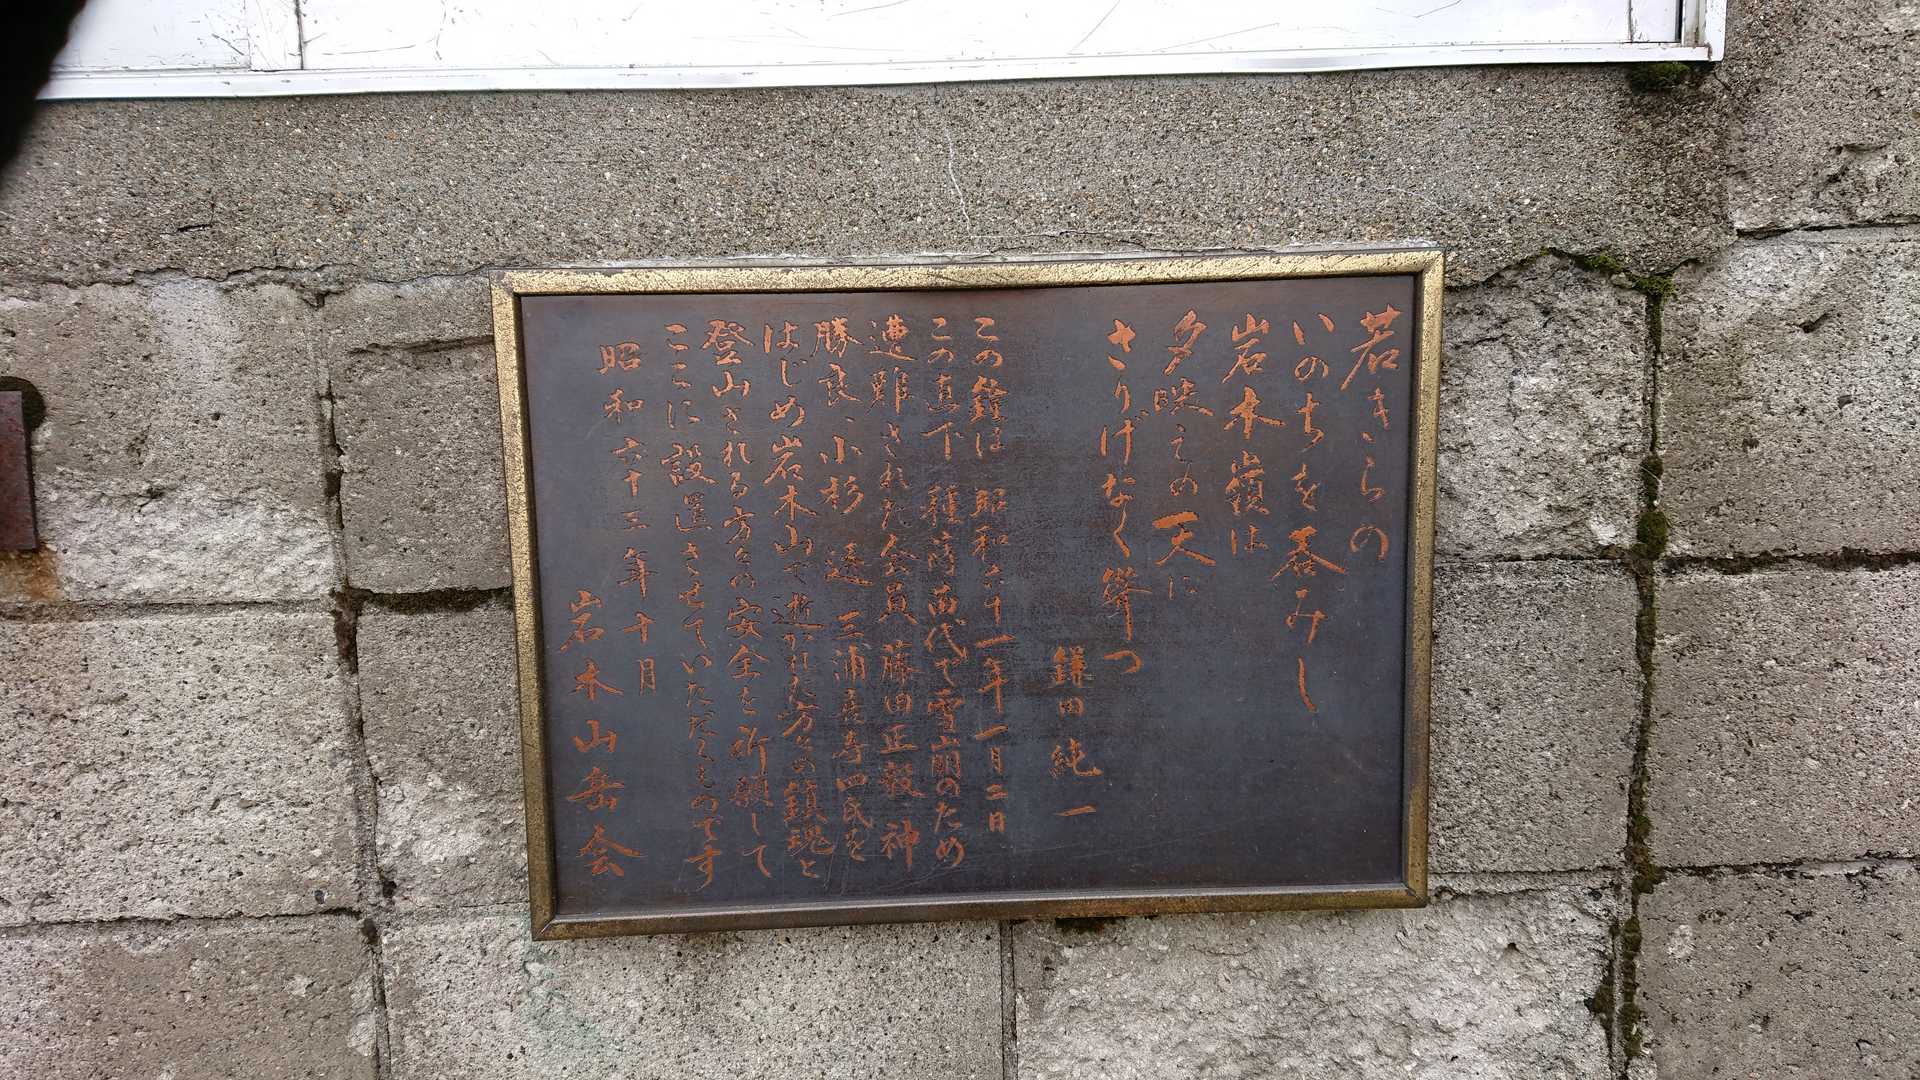 若きらの
いのちを呑みし
岩木嶺は
夕映えの天に
さりげなく聳つ
鎌田純一
この鐘は 昭和六十一年一月二日
この真下 種蒔苗代で雪崩のため
遭難された会員 藤田正毅 神
勝良、小杉 透 三浦彦孝四氏を
はじめ岩木山で逝かれた方々の鎮魂と
登山される方々の安全を祈願して
ここに設置させていただくものです
昭和六十三年十月
岩木山岳会